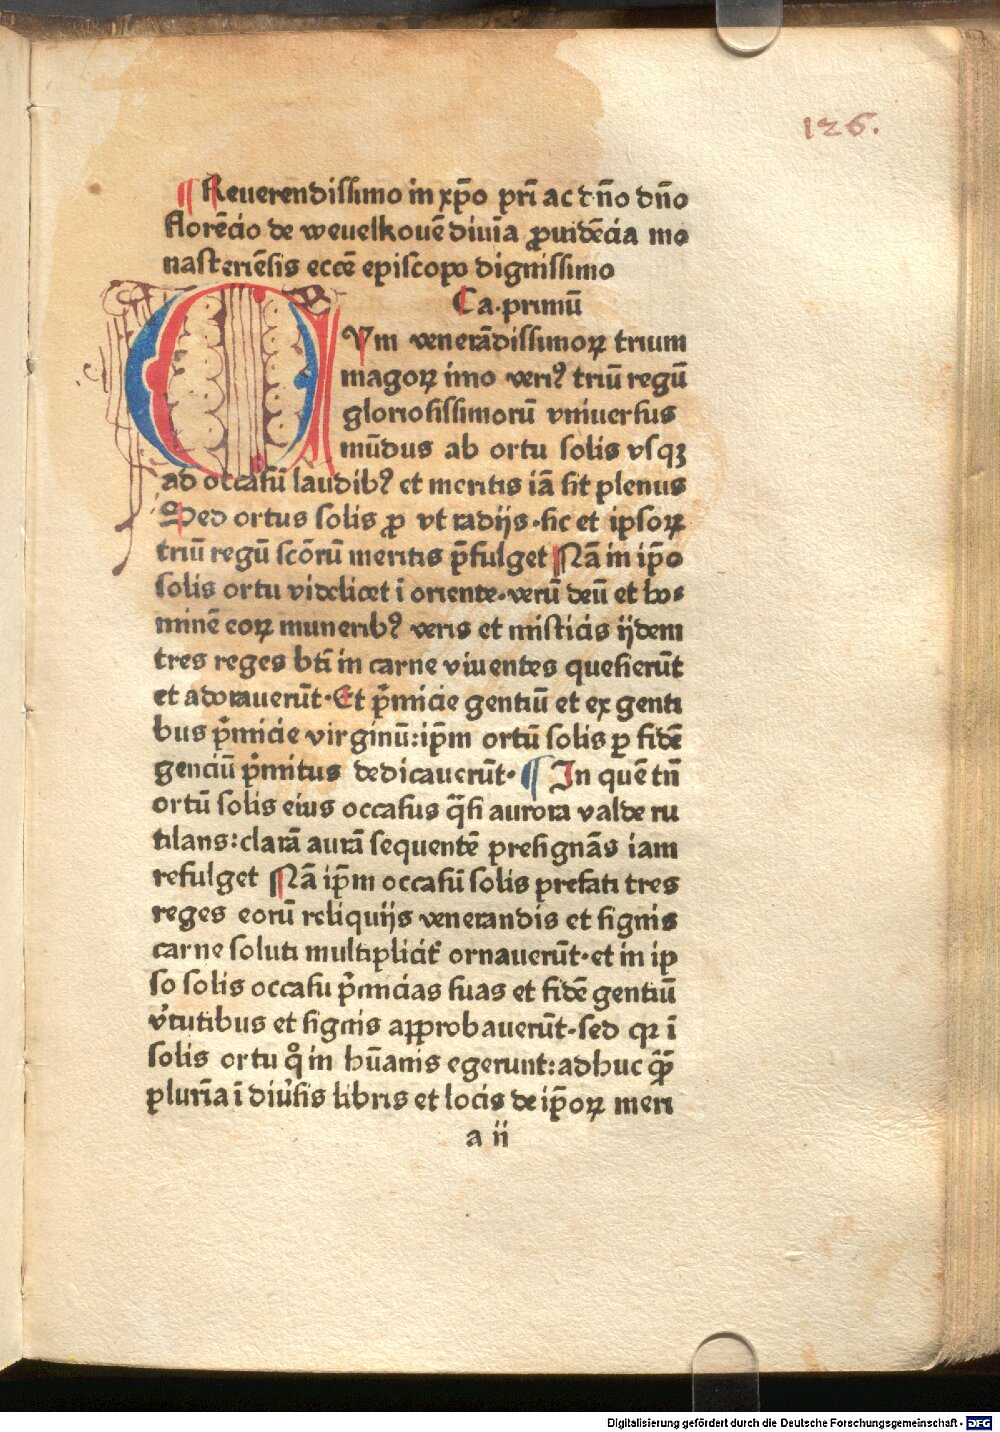 126.
¶ Reuerendissimo in xp̄o pr̄i ac dn̄o dn̄o
florēcio de weuelkouē diuīa ꝓuidēcia mo
nasteriēsis ecc̄e episcopo dignissimo
Ca.primū
CVm venerādissimoꝝ trium
magoꝝ imo veriꝰ triū regū
gloriosissimorū vniuersus
mūdus ab ortu solis vsqꝫ
ad occasū laudibꝰ et meritis iā sit plenus
Sed ortus solis ꝓ vt radijs.sic et ipsoꝝ
triū regū scōrū meritis p̄fulget Nā in ip̄o
solis ortu videlicet ī oriente.verū deū et ho⸗
minē eoꝝ muneribꝰ veris et misticis ijdem
tres reges bt̄i in carne viuentes quesierūt
et adorauerūt.Et p̄micie gentiū et ex genti
bus p̄micie virginū:ip̄m ortū solis ꝑ fidē
genciū p̄mitus dedicauerūt. ¶ In quē tn̄
ortū solis eius occasus q̄si aurora valde ru
tilans:clarā aurā sequentē presignās iam
refulget Nā ip̄m occasū solis prefati tres
reges eorū reliquijs venerandis et signis
carne soluti multiplicit̄ ornauerūt.et in ip
so solis occasu p̄micias suas et fidē gentiū
v̓tutibus et signis approbauerūt.sed qꝛ ī
solis ortu qͦ in hūanis egerunt:adhuc qͣꝫ
plurīa ī diu̓sis libris et locis de ip̄oꝝ meri
a ii
Digitalisierung gefördert durch die Deutsche Forschungsgemeinschaft - DFG